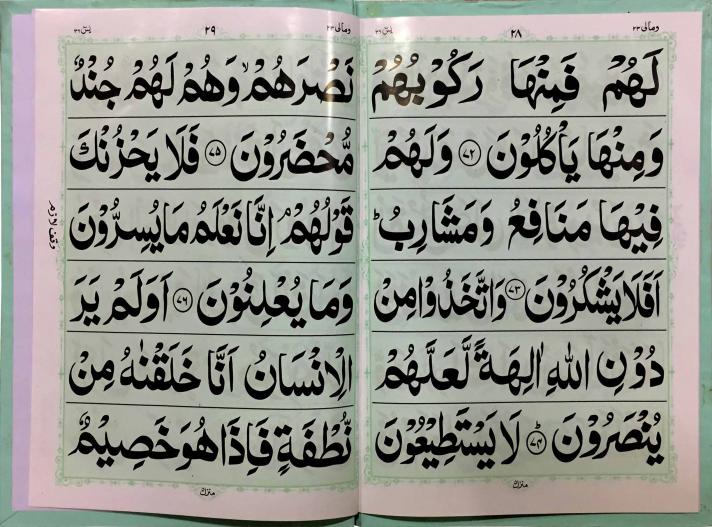 ومالی ۲۳
۲۸
یٰسٓ ۳۶
لَهُمْ فَمِنْهَا رَكُوْبُهُمْ
وَمِنْهَا يَاْكُلُوْنَ ﴿۷۲﴾ وَلَهُمْ
فِيْهَا مَنَافِعُ وَمَشَارِبُ ؕ
اَفَلَا يَشْكُرُوْنَ ﴿۷۳﴾ وَاتَّخَذُوْا مِنْ
دُوْنِ اللّٰهِ اٰلِهَةً لَّعَلَّهُمْ
يُنْصَرُوْنَ ؕ﴿۷۴﴾ لَا يَسْتَطِيْعُوْنَ
منزل۵
ومالی ۲۳
۲۹
یٰسٓ ۳۶
نَصْرَهُمْ ۙ وَهُمْ لَهُمْ جُنْدٌ
مُّحْضَرُوْنَ ﴿۷۵﴾ فَلَا يَحْزُنْكَ
قَوْلُهُمْ ۘ اِنَّا نَعْلَمُ مَا يُسِرُّوْنَ
وَمَا يُعْلِنُوْنَ ﴿۷۶﴾ اَوَلَمْ يَرَ
الْاِنْسَانُ اَنَّا خَلَقْنٰهُ مِنْ
نُّطْفَةٍ فَاِذَا هُوَ خَصِيْمٌ
وقف لازم
منزل۵